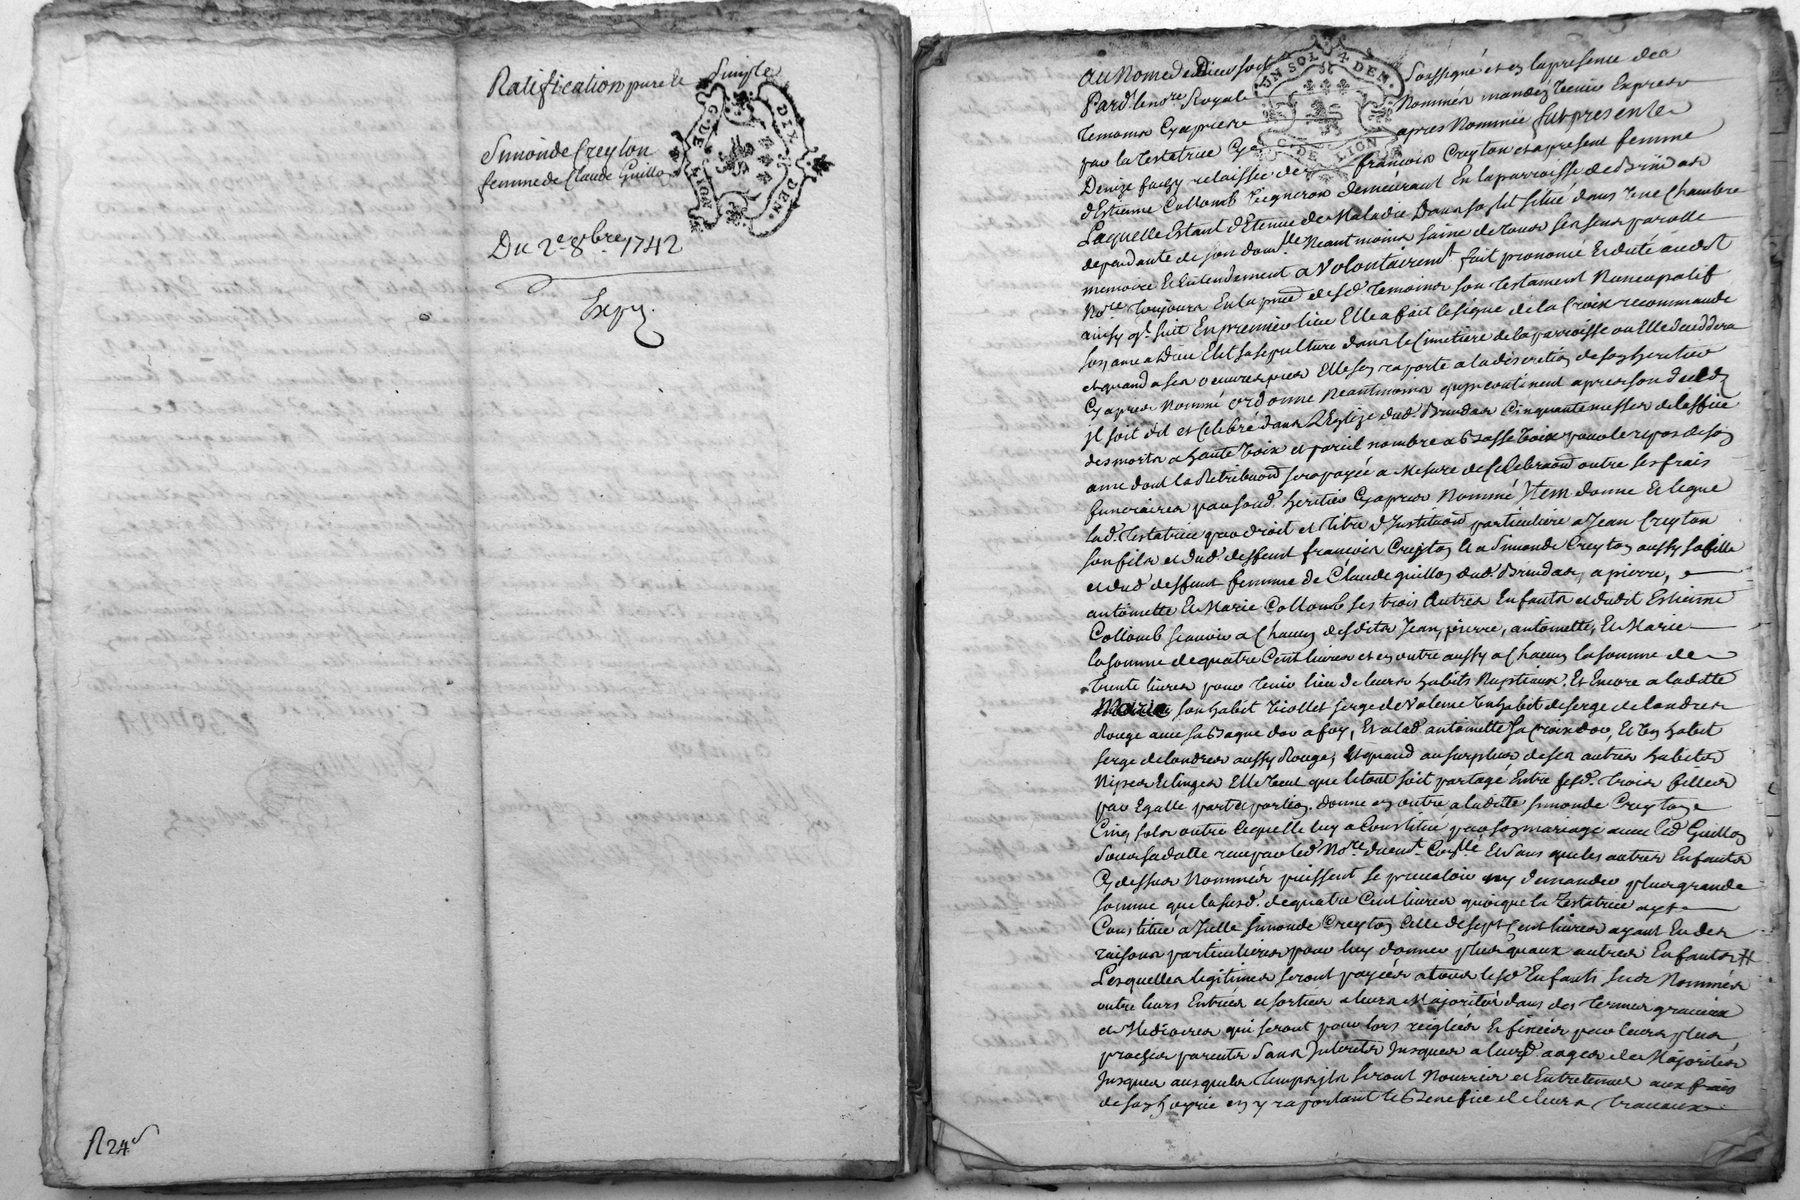 Ratification pure le Simple
Simonde Creyton
femme de Claude Guillon
Du 2e 8bre 1742
Expy.
R 24
UN SOL 4 DEN.
G. DE LION
SIX DEN.
G. DE LION
Au Nom de Dieu soit Soussigné et en la presence de
Pard. le nore Royale Nommés mandez Venir Expres
temoins Cyapres apres Nommée fut presente
par la Testatrice Cy
Denize faizy relaissée de françois Creyton et apresent femme
d'Estienne Collomb Vigneron demeurant En la parroisse de Brindas
Laquelle Estant d'Etenue de Maladie Dans son lit situé dans Une Chambre
dependante de son domlle Neantmoins saine de tous ses sens parolle
memoire Et Entendement a Volontairemt fait prononcé Et dicté audt
Nore toujours En la pnce desd temoins son testament Nuncupatif
ainsy ql suit En premier lieu Elle a fait le signe de la Croix recommandé
son ame a Dieu Elit sa sepulture dans le Cimetiere de la parroisse ou Elle deceddera
et quand a ses oeuvres pies Elle sen raporte a la discretion de son heritier
Cyapres Nommé ordonne Neantmoins qu'incontinent apres son deceds
Il soit dit et Celebré dans L'Eglize dud. Brindas Cinquante messes de l'office
des morts a haute Voix et pareil nombre a Basse Voix pour le repos de son
ame dont la Retribuon sera payée a Mesure de Celebraon outre ses frais
funeraires par sond. heritier Cyapres Nommé Item donne Et legue
lad. Testatrice par droit et titre d'Instituon particuliere a Jean Creyton
son fils et dud. deffunt françois Creyton Et a Simonde Creyton aussy sa fille
et dud deffunt femme de Claude guillon dud. Brindas, a pierre,
antoinette Et Marie Collomb ses trois Autres Enfants et dudt Estienne
Collomb scavoir a Chacun desdits Jean, pierre, antoinette, Et Marie
la somme de quatre Cent livres et en outre aussy a Chacun la somme de
trente livres pour tenir lieu de leurs habits Nuptiaux. Et Encore a ladtte
Marie son habit Viollet serge de Valence Un habit de serge de londres
Rouge avec sa Bague d'or a foy, Et alad. antoinette sa Croix d'or, Et Un habit
serge de londres aussy Rouge, Et quand au surplus de ses autres habits
Nipes et linges Elle Veut que le tout soit partagé Entre sesd. trois filles
par Egalle part et portion. donne en outre a ladtte Simonde Creyton
Cinq sols outre Ce quelle luy a Constitué par son mariage avec led Guillon
Sous sa datte recu par led Nore Et sans que les autres Enfants
Cydessus Nommés puissent se prevaloir ny demander plus grande
somme que la susd. de quatre Cent livres quoique la Testatrice ayt
Constitué a Icelle Simonde Creyton Celle de sept Cent livres ayant Eu des
raisons particulieres pour luy donner plus qu'aux autres Enfants #
Lesquelles legitimes seront payées a tous lesd Enfants sus Nommés
outre leurs Entrées et sorties a leurs Majorités dans des termes gracieux
et Mediocres qui seront pour lors reiglées Et fixées par leurs plus
proches parents Sans Interets Jusques a leursd. ages de Majorités
Jusques auquels temps ils seront Nourries et Entretenus aux frais
de son hoyrie en y raportant le Benefice de leurs travaux